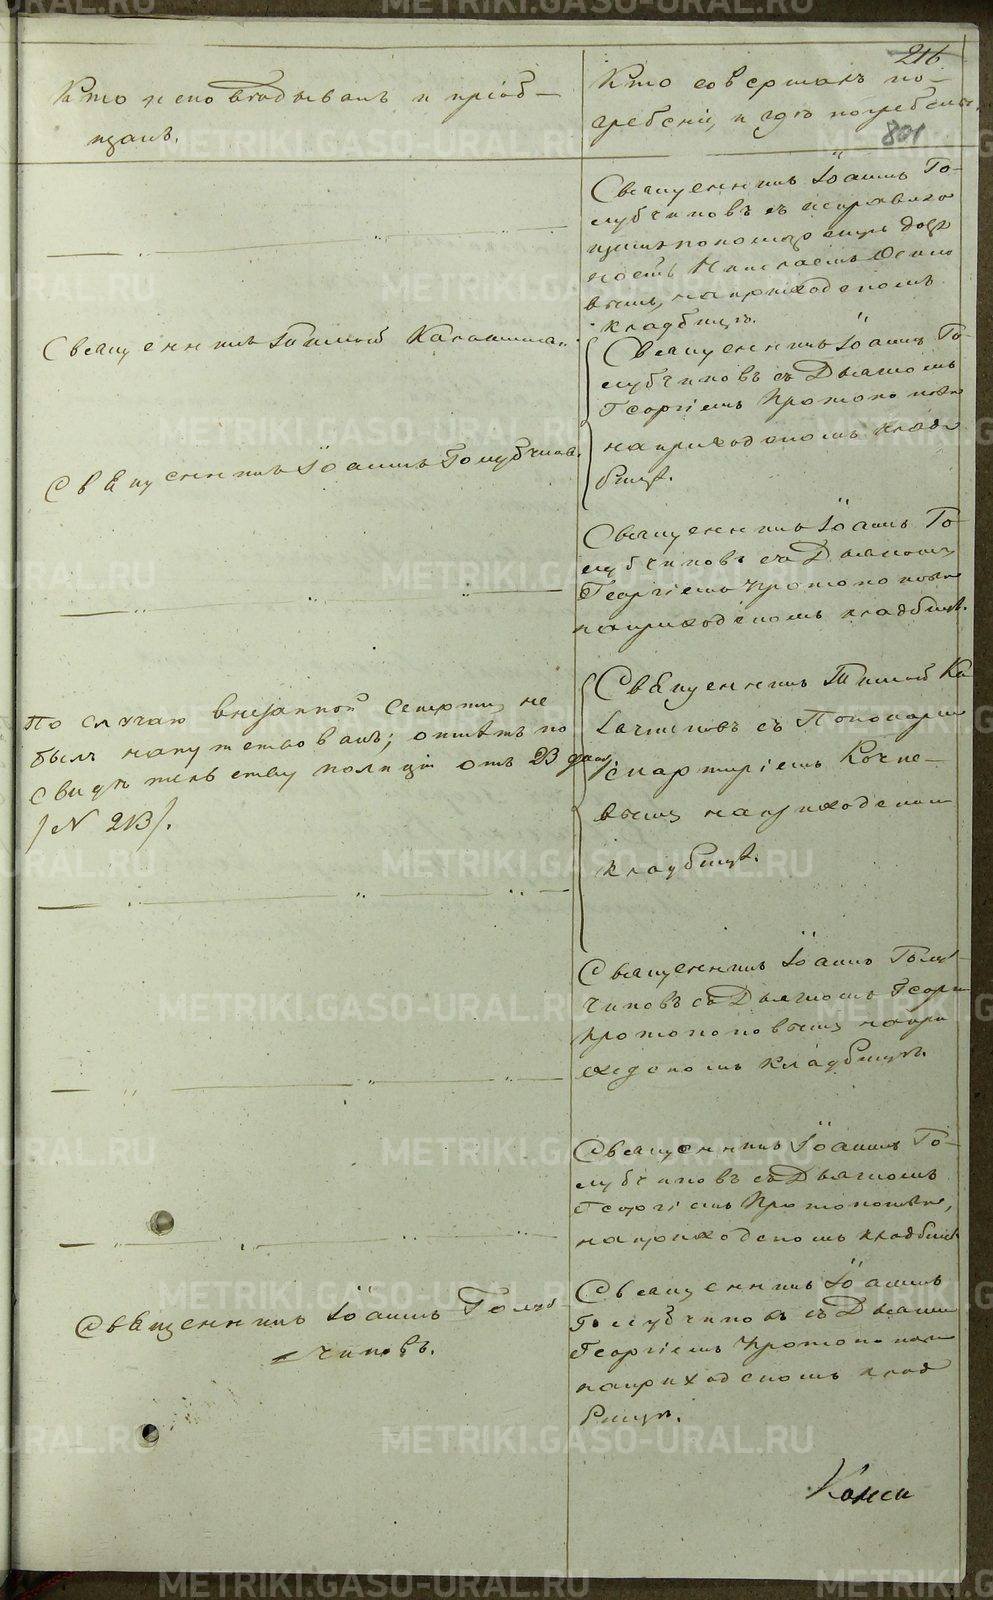 216
801
Кто исповѣдывалъ и пріоб-
щалъ.
Кто совершалъ по-
гребеніе, и гдѣ погребены.
Священникъ Іоаннъ Го-
лубчиковъ съ исправляю
щимъ
ность
на приходскомъ
кладбищѣ.
Священникъ Тимофей
Священникъ Іоаннъ Го-
лубчиковъ съ Дьякономъ
Георгіемъ Протопоповы
на приходскомъ клад
бищѣ.
Священникъ Іоаннъ Голубчиков.
Священникъ Іоаннъ Го-
лубчиковъ съ Дьякономъ
Георгіемъ Протопоповы
на приходскомъ кладбищѣ.
По случаю внезапной смерти не
былъ напутствованъ; отпѣтъ по
свидѣтельству полиціи отъ 23
/№ 213/.
Священникъ Тимофей Ка
съ Пономаремъ
на приходском
кладбищѣ.
Священникъ Іоаннъ Голуб-
чиковъ съ Дьякономъ Георгі
Протопоповымъ на при
ходскомъ кладбищѣ.
Священникъ Іоаннъ Го-
лубчиковъ съ Дьякономъ
Георгіемъ Протопоповы,
на приходскомъ кладбищѣ
Священникъ Іоаннъ Голуб-
чиковъ.
Священникъ Іоаннъ
Голубчиковъ съ Дьякон
Георгіемъ Протопопов
на приходскомъ клад
бищѣ.
METRIKI.GASO-URAL.RU